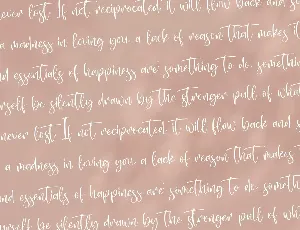 never lost. If not reciprocated it will flow back and s
a madness in loving you, a lack of reason that makes it
nd essentials of happiness are something to do, somethin
urself be silently drawn by the stronger pull of what
never lost. If not reciprocated it will flow back and s
a madness in loving you, a lack of reason that makes
nd essentials of happiness are something to do, someth
urself be silently drawn by the stronger pull of wh